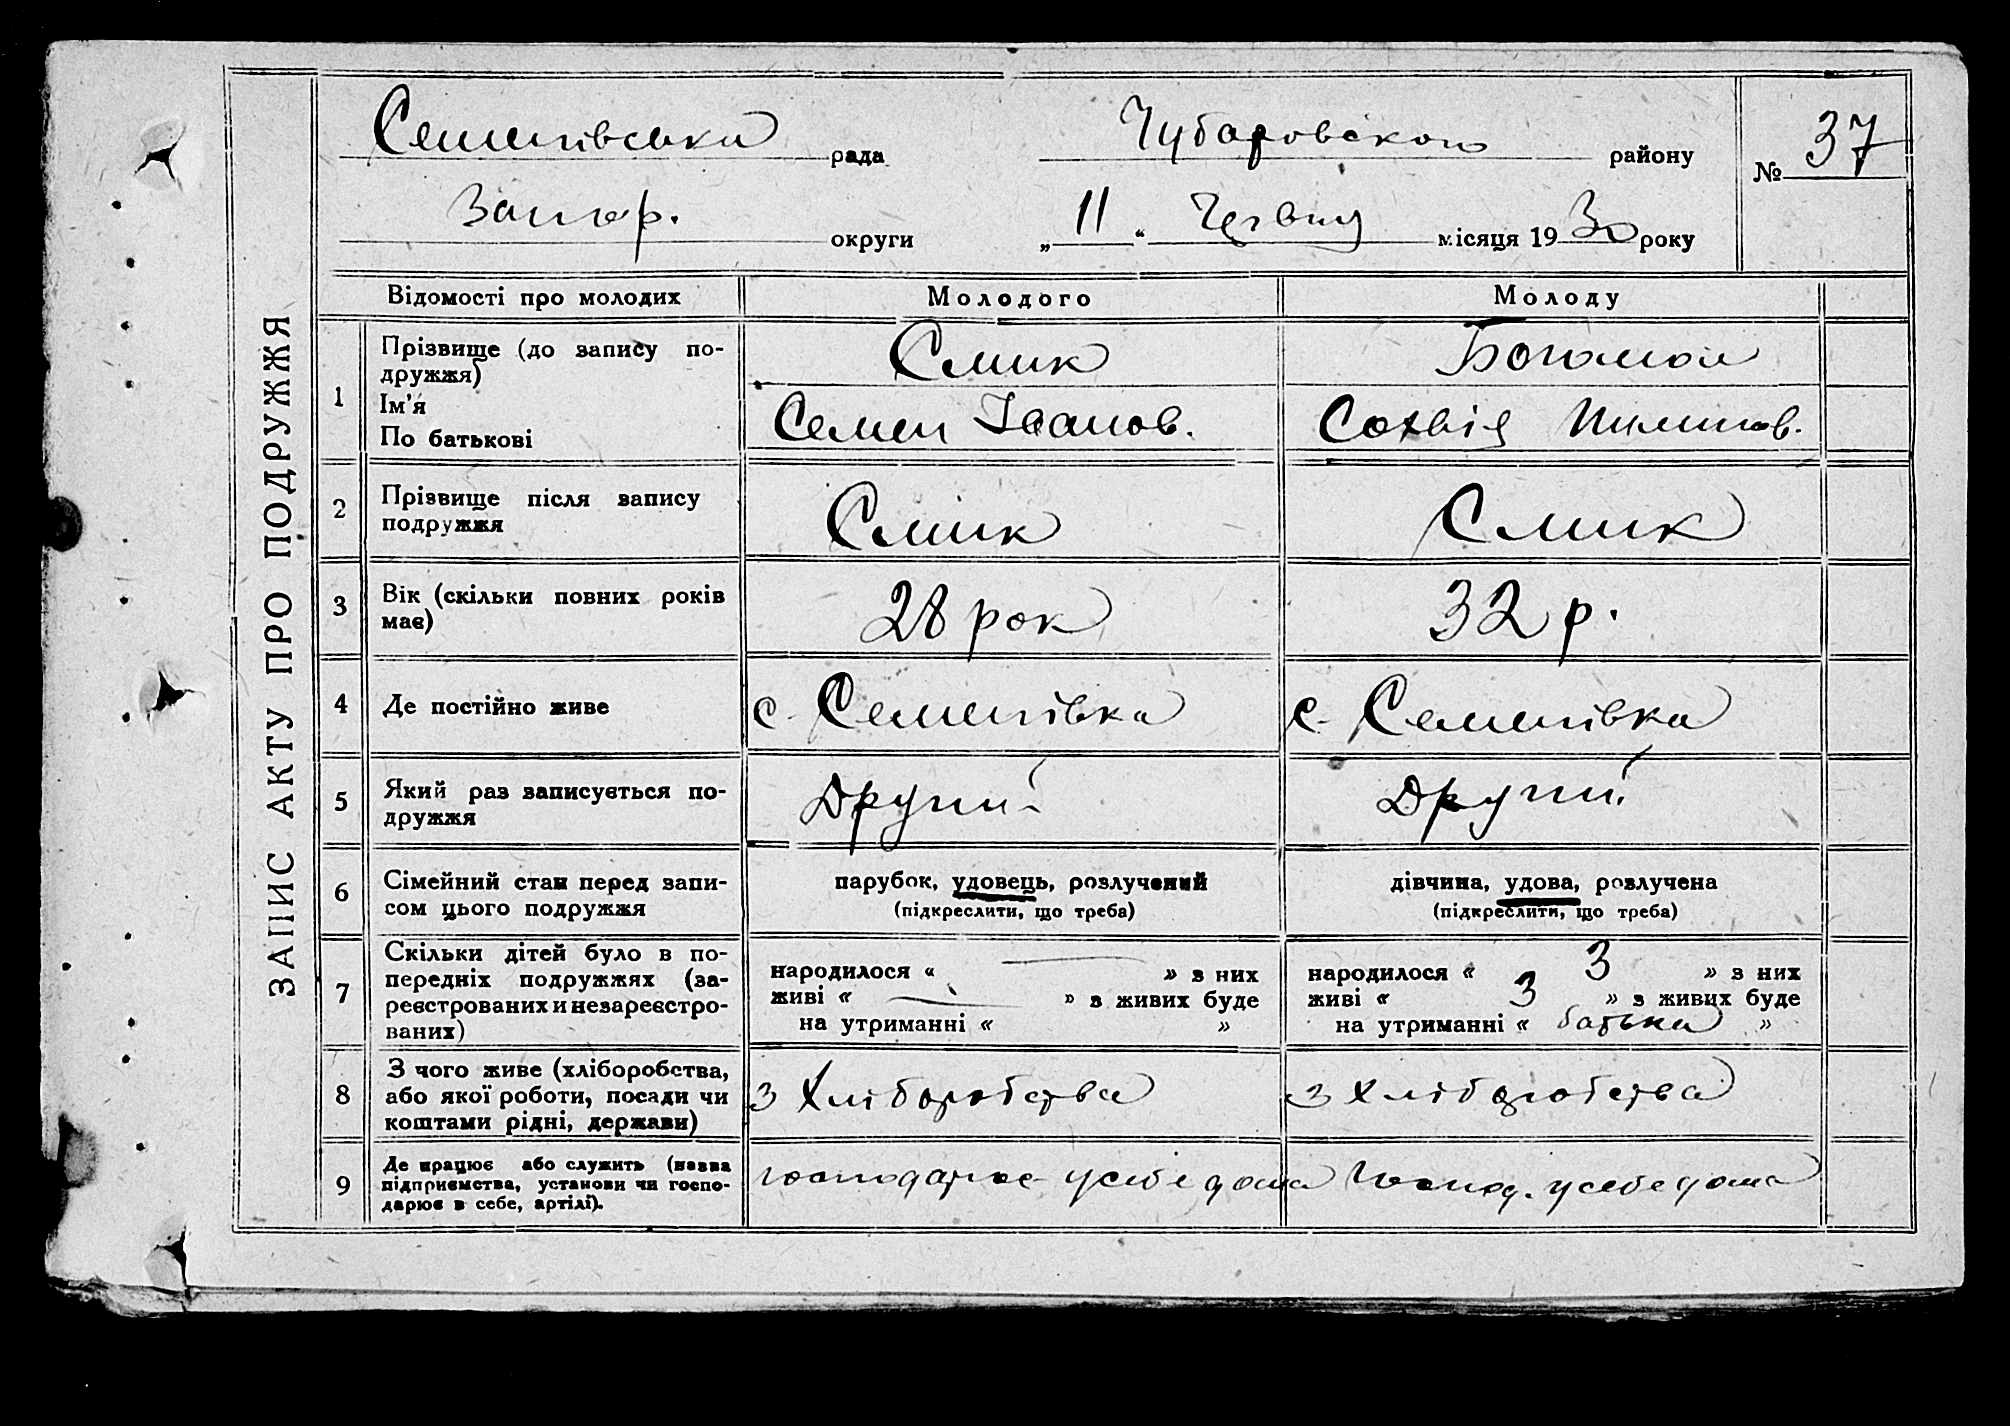 ЗАПИС АКТУ ПРО ПОДРУЖЖЯ
Семенівська рада Чубаровского району № 37
Запор. округи „ 11 “ Червня місяця 1930 року
Відомості про молодих Молодого Молоду
1 Прізвище (до запису по-
дружжя) Смик Богомол
Ім’я
По батькові Семен Іванов. Сохвія Пилипов.
2 Прізвище після запису
подружжя Смик Смик
3 Вік (скільки повних років
має) 28 рок 32 р.
4 Де постійно живе с. Семенівка с. Семенівка
5 Який раз записується по-
дружжя Другий Другий
6 Сімейний стан перед запи-
сом цього подружжя
парубок, удовець, розлучений
(підкреслити, що треба)
дівчина, удова, розлучена
(підкреслити, що треба)
7 Скільки дітей було в по-
передніх подружжях (за-
реєстрованих и незареєстро-
ваних)
народилося « — » з них
живі « — » з живих буде
на утриманні « »
народилося « 3 » з них
живі « 3 » з живих буде
на утриманні « батька »
8 З чого живе (хліборобства,
або якої роботи, посади чи
коштами рідні, держави)
з Хліборобства з Хліборобства
9 Де працює або служить (назва
підприємства, установи чи госпо-
дарює в себе, артілі).
господарює у себе дома Господ. у себе дома